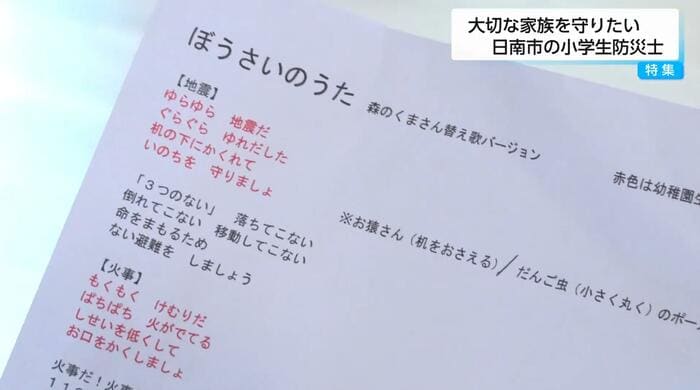 大切な家族を守りたい
日南市の小学生防災士
特集
ぼうさいのうた 森のくまさん替え歌バージョン
赤色は幼稚園生
【地震】
ゆらゆら 地震だ
ぐらぐら ゆれだした
机の下にかくれて
いのちを 守りましょ
「３つのない」 落ちてこない
倒れてこない 移動してこない
命をまもるため
ない避難を しましょう
※お猿さん（机をおさえる）／だんご虫（小さく丸く）のポー
【火事】
もくもく けむりだ
ぱちぱち 火がでてる
しせいを低くして
お口をかくしましょ
火事だ！火事